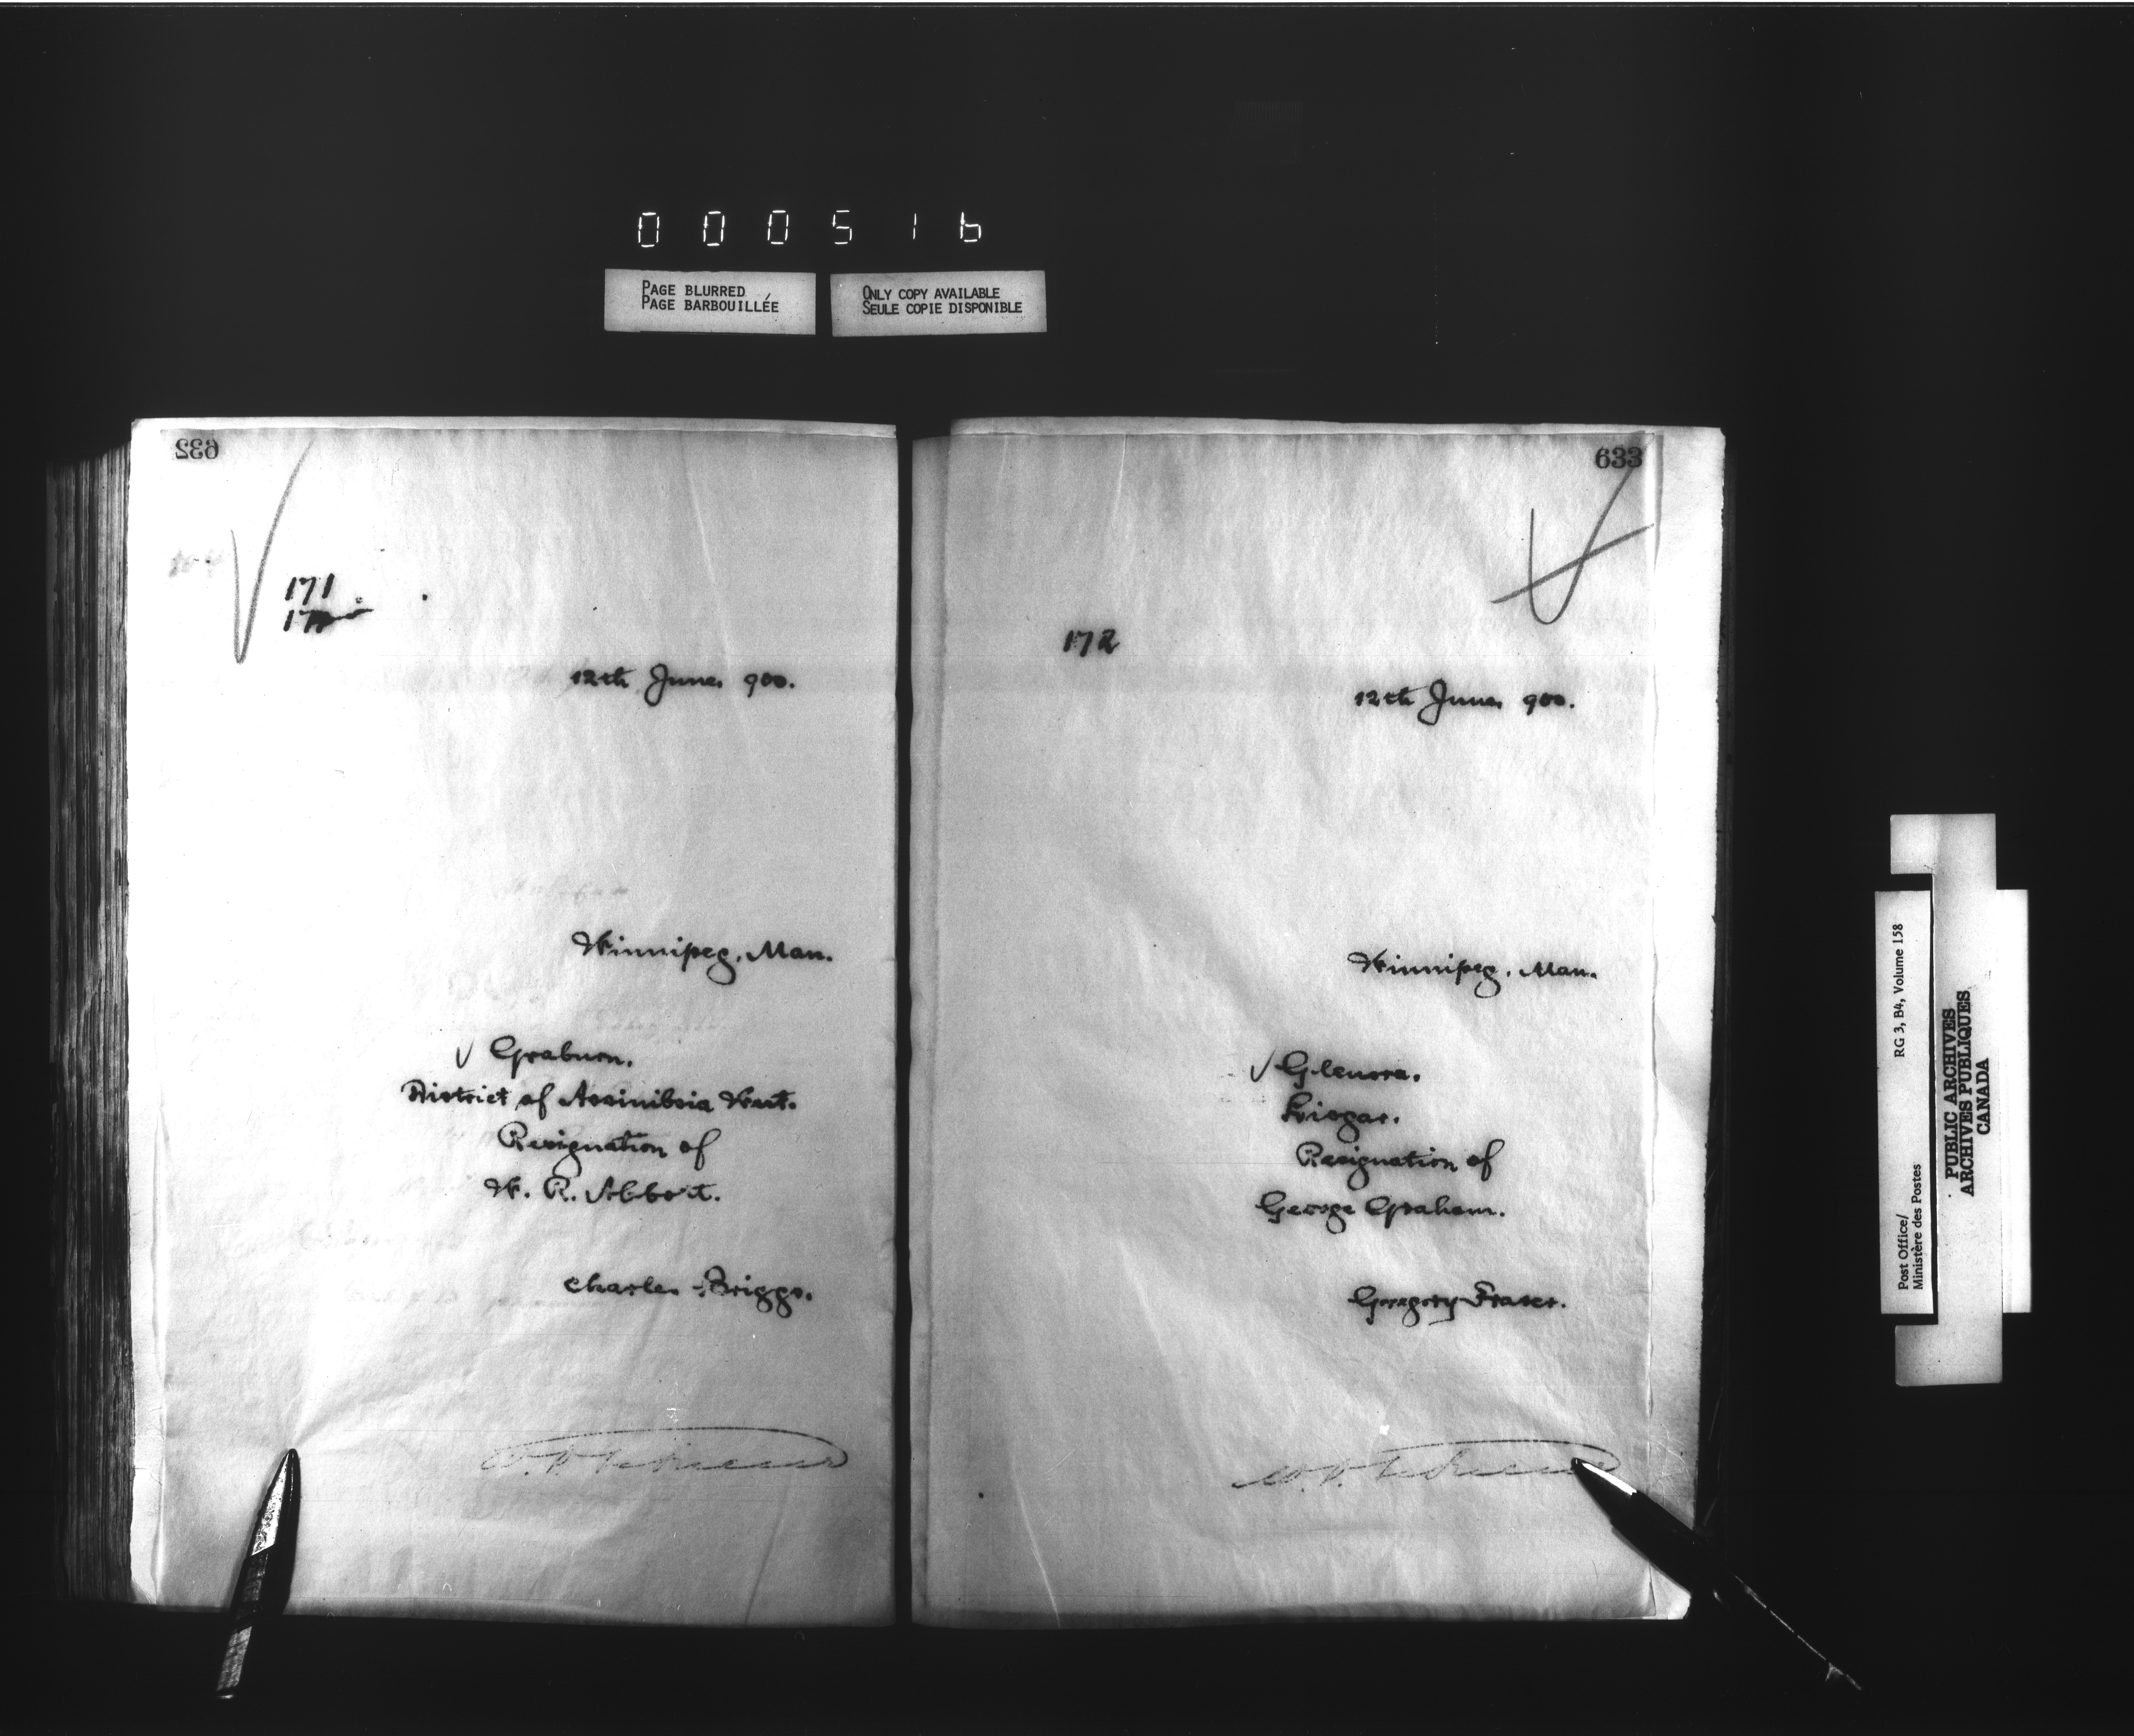 000516
PAGE BLURRED
PAGE BARBOUILLÉE
ONLY COPY AVAILABLE
SEULE COPIE DISPONIBLE
632
171
12th June 900.
Winnipeg, Man.
Graburn.
District of Assiniboia West.
Resignation of
W. R. Abbott.
Charles Briggs.
633
172
12th June 900.
Winnipeg, Man.
Glenora.
Lisgar.
Resignation of
George Graham.
Gregory Fraser.
Post Office/
Ministère des Postes
RG 3, B4, Volume 158
PUBLIC ARCHIVES
ARCHIVES PUBLIQUES
CANADA